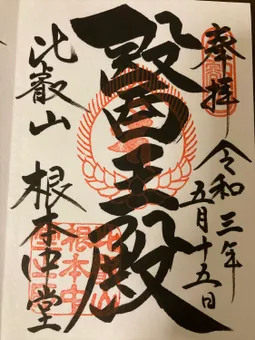 奉拝
令和三年
五月十五日
醫王殿
比叡山 根本中堂